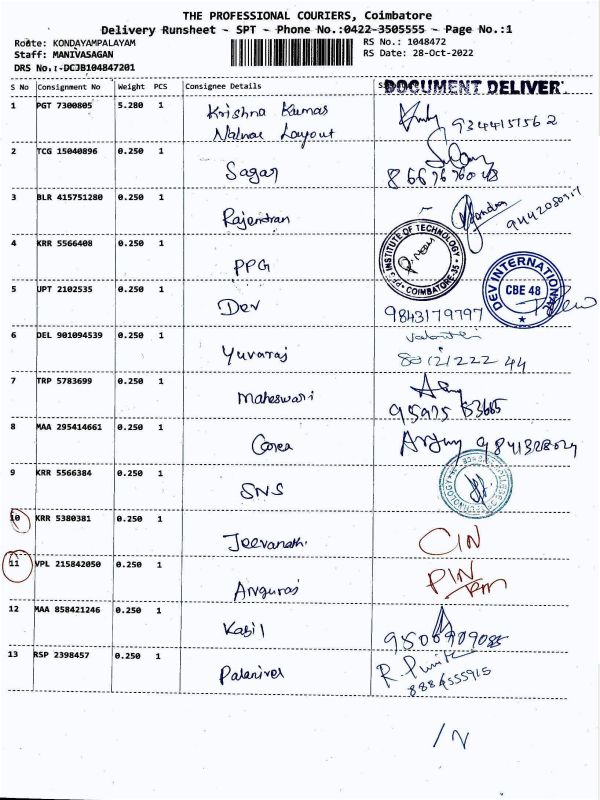 THE PROFESSIONAL COURIERS, Coimbatore
Delivery Runsheet - SPT - Phone No.:0422-3505555 - Page No.:1
Route: KONDAYAMPALAYAM RS No.: 1048472
Staff: MANIVASAGAN RS Date: 28-Oct-2022
DRS No.:-DCJB104847201
S No Consignment No Weight PCS Consignee Details DOCUMENT DELIVER
1 PGT 7300805 5.280 1 Krishna Kumar
Nalnar Layout 9344151562
2 TCG 15040896 0.250 1 Sagar
3 BLR 415751280 0.250 1 Rajendran
4 KRR 5566408 0.250 1 PPG INSTITUTE OF TECHNOLOGY COIMBATORE-35
5 UPT 2102535 0.250 1 Dev 9843179797 DEV INTERNATIONAL CBE 48
6 DEL 901094539 0.250 1 Yuvaraj
7 TRP 5783699 0.250 1 Maheswari
8 MAA 295414661 0.250 1
9 KRR 5566384 0.250 1 SNS
10 KRR 5380381 0.250 1 CIN
11 VPL 215842050 0.250 1 Anguraj PIN
12 MAA 858421246 0.250 1 Kabil
13 RSP 2398457 0.250 1 Palanivel 8884555915